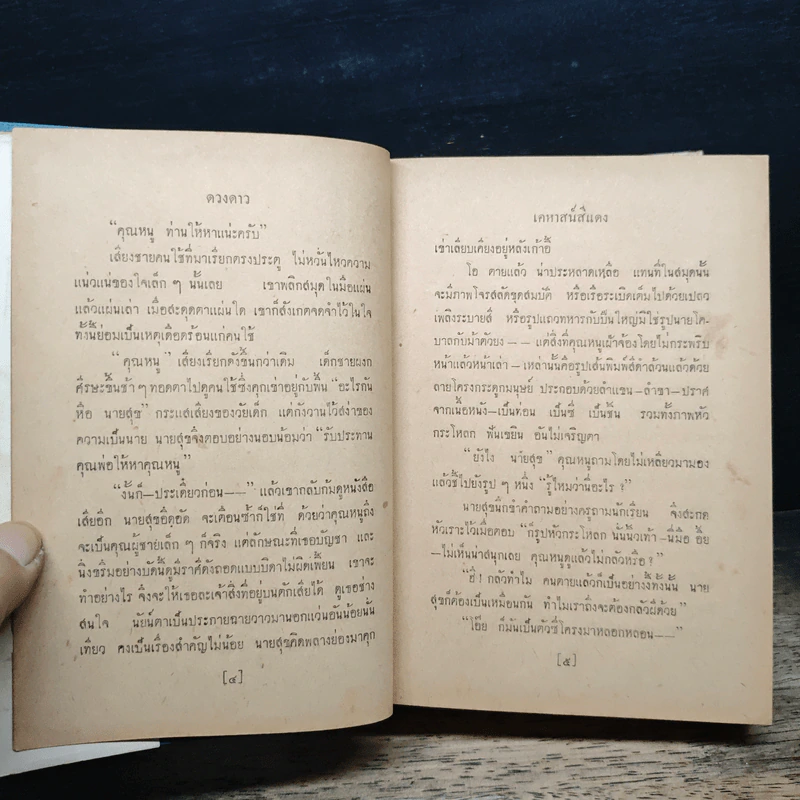 ดวงดาว
“คุณหนู ท่านให้หาแน่ะครับ”
เสียงชายคนใช้ที่มาเรียกตรงประตู ไม่หวั่นไหวความ
แน่วแน่ของใจเล็ก ๆ นั้นเลย เขาพลิกสมุดในมือแผ่น
แล้วแผ่นเล่า เมื่อสะดุดตาแผ่นใด เขาก็สังเกตจดจำไว้ในใจ
ทั้งนี้ย่อมเป็นเหตุเดือดร้อนแก่คนใช้
“คุณหนู” เสียงเรียกดังขึ้นกว่าเดิม เด็กชายผงก
ศีรษะขึ้นช้า ๆ ทอดตาไปดูคนใช้ซึ่งคุกเข่าอยู่กับพื้น “อะไรกัน
หือ นายสุข” กระแสเสียงของวัยเด็ก แต่กังวานไว้สง่าของ
ความเป็นนาย นายสุขจึงตอบอย่างนอบน้อมว่า “รับประทาน
คุณพ่อให้หาคุณหนู”
“งั้นก็—ประเดี๋ยวก่อน——” แล้วเขากลับก้มดูหนังสือ
เสียอีก นายสุขอึดอัด จะเตือนซ้ำก็ใช่ที่ ด้วยว่าคุณหนูถึง
จะเป็นคุณผู้ชายเล็ก ๆ ก็จริง แต่ลักษณะที่เธอบัญชา และ
นิ่งขรึมอย่างบัดนี้ดูมีราศีดังถอดแบบบิดาไม่ผิดเพี้ยน เขาจะ
ทำอย่างไร จึงจะให้เธอละเจ้าสิ่งที่อยู่บนตักเสียได้ ดูเธอช่าง
สนใจ นัยน์ตาเป็นประกายฉายวาวมานอกแว่นอันน้อยนั้น
เทียว คงเป็นเรื่องสำคัญไม่น้อย นายสุขคิดพลางย่องมาคุก
[๔]
เคหาสน์สีแดง
เข่าเลียบเคียงอยู่หลังเก้าอี้
โอ ตายแล้ว น่าประหลาดเหลือ แทนที่ในสมุดนั้น
จะมีภาพโจรสลัดขุดสมบัติ หรือเรือระเบิดเต็มไปด้วยเปลว
เพลิงระบายสี หรือรูปแถวทหารกับปืนใหญ่มีใช่รูปนายโค-
บาลกับม้าตัวยง—— แต่สิ่งที่คุณหนูเฝ้าจ้องโดยไม่กระพริบ
หน้าแล้วหน้าเล่า—เหล่านั้นคือรูปเส้นพิมพ์สีดำล้วนแล้วด้วย
ลายโครงกระดูกมนุษย์ ประกอบด้วยลำแขน—ลำขา—ปราศ
จากเนื้อหนัง—เป็นท่อน เป็นซี่ เป็นชิ้น รวมทั้งภาพหัว
กระโหลก ฟันเขยิน อันไม่เจริญตา
“ยังไง นายสุข” คุณหนูถามโดยไม่เหลียวมามอง
แล้วชี้ไปยังรูป ๆ หนึ่ง “รู้ไหมว่านี่อะไร ?”
นายสุขนึกขำคำถามอย่างครูถามนักเรียน จึงสะกด
หัวเราะไว้เมื่อตอบ “ก็รูปหัวกระโหลก นั่นนิ้วเท้า—นี่มือ อื้อ
—ไม่เห็นน่าสนุกเลย คุณหนูดูแล้วไม่กลัวหรือ ?”
“ฮื่! กลัวทำไม คนตายแล้วก็เป็นอย่างงี้ทั้งนั้น นาย
สุขก็ต้องเป็นเหมือนกัน ทำไมเราถึงจะต้องกลัวผีด้วย”
“โอ๊ย ก็มันเป็นตัวซี่โครงมาหลอกหลอน——”
[๕]